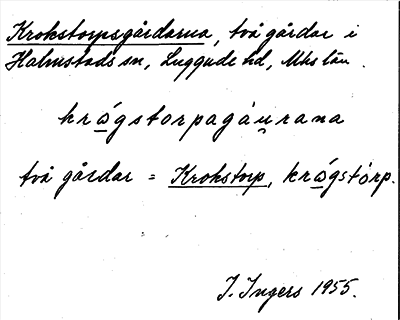 Krokstorpsgårdarna, två gårdar i
Halmstads sn, Luggude hd, Mhs län.
krǫ́gstorpagáu̯rana
två gårdar = Krokstorp, krǫ́gstórp.
I. Ingers 1955.